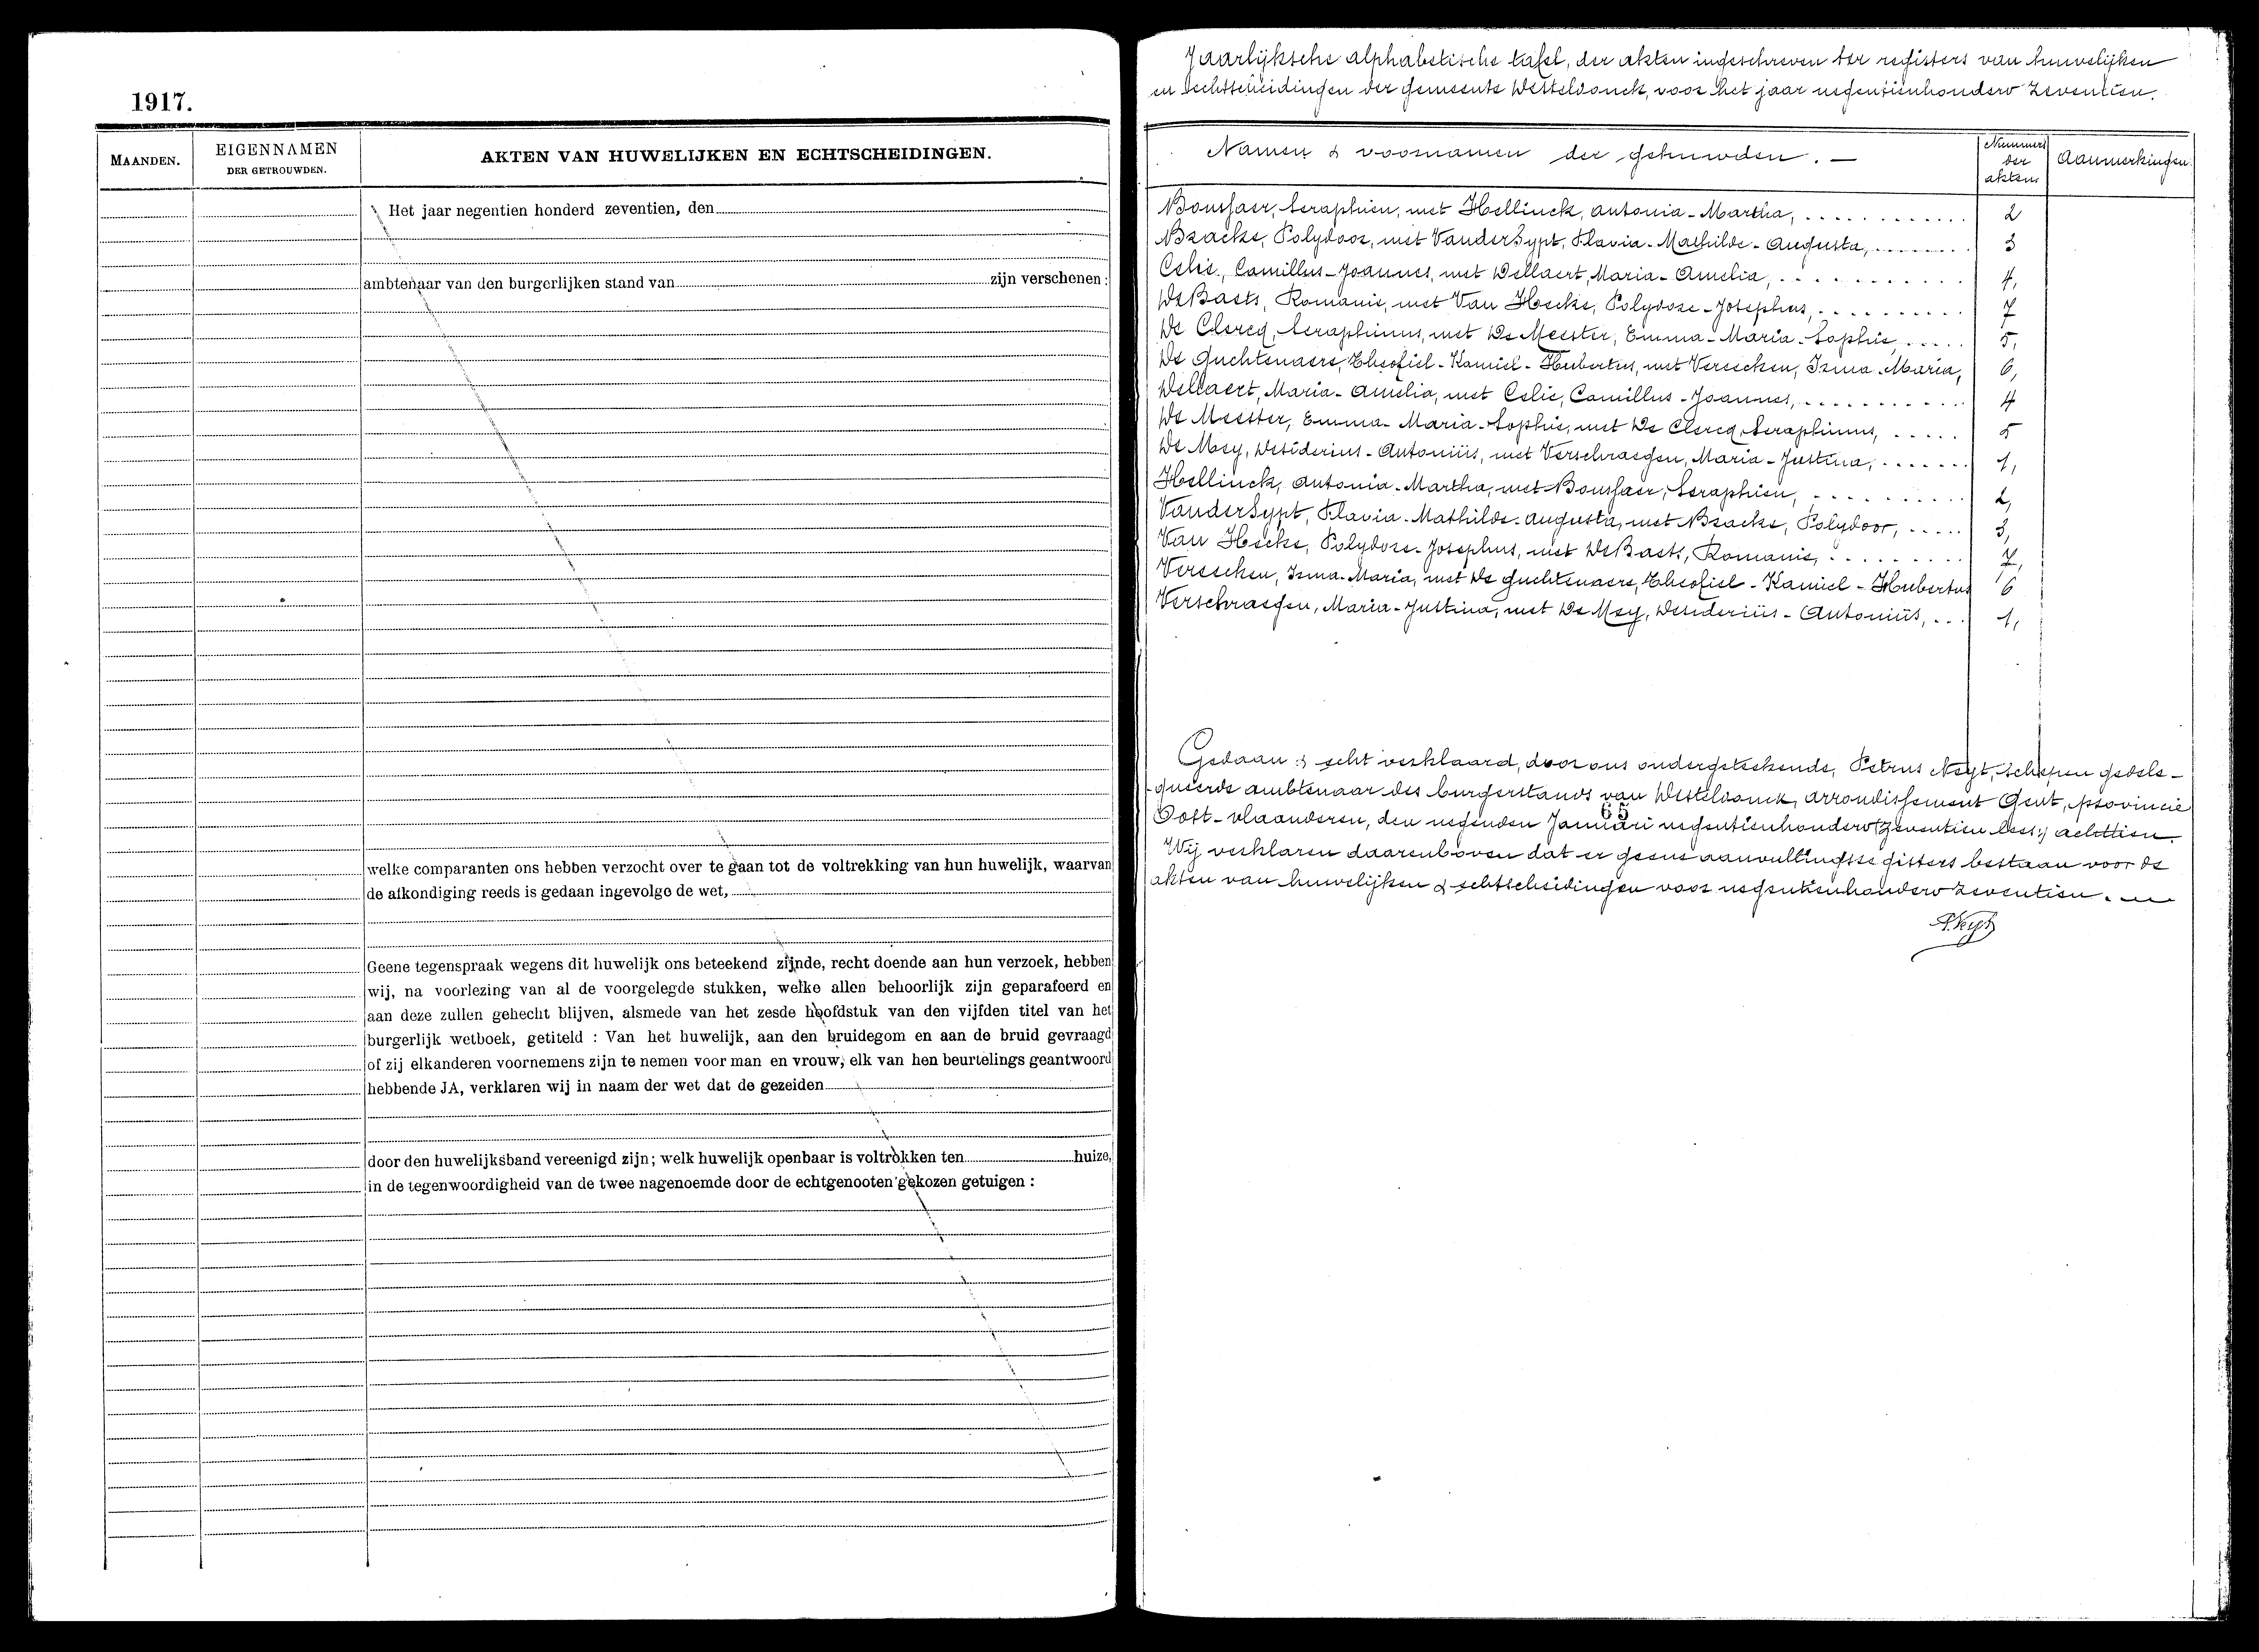 1917.
MAANDEN.
EIGENNAMEN
DER GETROUWDEN.
AKTEN VAN HUWELIJKEN EN ECHTSCHEIDINGEN.
Het jaar negentien honderd zeventien, den
ambtenaar van den burgerlijken stand van zijn verschenen :
welke comparanten ons hebben verzocht over te gaan tot de voltrekking van hun huwelijk, waarvan
de afkondiging reeds is gedaan ingevolge de wet,
Geene tegenspraak wegens dit huwelijk ons beteekend zijnde, recht doende aan hun verzoek, hebben
wij, na voorlezing van al de voorgelegde stukken, welke allen behoorlijk zijn geparafeerd en
aan deze zullen gehecht blijven, alsmede van het zesde hoofdstuk van den vijfden titel van het
burgerlijk wetboek, getiteld : Van het huwelijk, aan den bruidegom en aan de bruid gevraagd
of zij elkanderen voornemens zijn te nemen voor man en vrouw, elk van hen beurtelings geantwoord
hebbende JA, verklaren wij in naam der wet dat de gezeiden
door den huwelijksband vereenigd zijn; welk huwelijk openbaar is voltrokken ten huize,
in de tegenwoordigheid van de twee nagenoemde door de echtgenooten gekozen getuigen :
Jaarlijksche alphabetische tafel, der akten ingeschreven ter registers van huwelijken
en echtscheidingen der gemeente Westeldonck, voor het jaar negentienhonderd zeventien.
Namen & voornamen der gehuwden. —
Nummers
der
akten.
Aanmerkingen.
Bousfaer, Seraphien, met Hellinck, Antonia-Martha, 2
Bracke, Polydoor, met VanderSypt, Flavia-Mathilde-Augusta, 3
Celie, Camillus-Joannes, met Dellaert, Maria-Amelia, 4,
DeBaets, Romanie, met Van Hecke, Polydore-Josephus, 7
De Clercq, Seraphinus, met De Meester, Emma-Maria-Sophie, 5,
De Guchtenaere, Theofiel-Kamiel-Hubertus, met Vereecken, Irma-Maria, 6,
Dellaert, Maria-Amelia, met Celie, Camillus-Joannes, 4
De Meester, Emma-Maria-Sophie, met De Clercq, Seraphinus, 5
De Mey, Desiderius-Antoniüs, met Verschraegen, Maria-Justina, 1,
Hellinck, Antonia-Martha, met Bousfaer, Seraphien, 2,
VanderSypt, Flavia-Mathilde-Augusta, met Bracke, Polydoor, 3,
Van Hecke, Polydore-Josephus, met DeBaets, Romanie, 7,
Vereecken, Irma-Maria, met De Guchtenaere, Theofiel-Kamiel-Hubertus 6
Verschraegen, Maria-Justina, met De Mey, Desideriüs-Antoniüs, 1,
Gedaan & echt verklaard, door ons ondergeteekende, Petrus Neyt, schepen gedele-
gueerde ambtenaar des burgerstands van Westeldonck, arrondissement Gent, provincie
65
Oost-vlaanderen, den negenden Januari negentienhonderd zeventien lees: achttien.
Wij verklaren daarenboven dat er geene aanvullingsregisters bestaan voor de
akten van huwelijken & echtscheidingen voor negentienhonderd zeventien.
P. Neyt